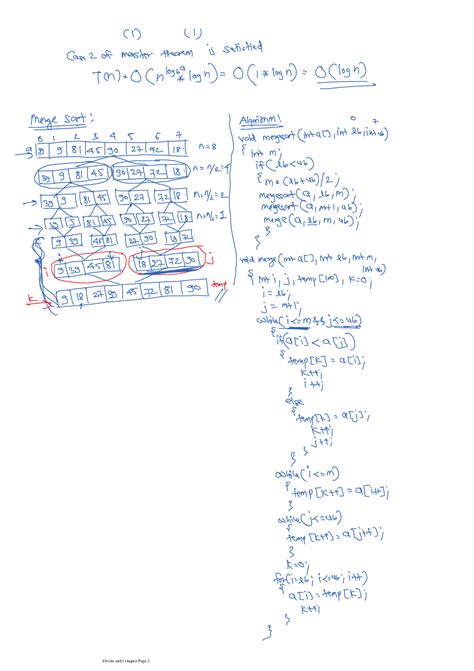 (1) (1)
Case 2 of master theorem is satisfied
T(n) = O(n^log_b a * log n) = O(1 * log n) = O(log n)
Merge Sort:
0 1 2 3 4 5 6 7
39 9 81 45 90 27 72 18 n=8
39 9 81 45 90 27 72 18 n=n/2=4
39 9 81 45 90 27 72 18 n=n/2=2
39 9 81 45 90 27 72 18 n=n/2=1
9 39 45 81 27 90 18 72
i 9 39 45 81 18 27 72 90 j
k 9 18 27 39 45 72 81 90 temp
Algorithm:
0 7
void mergesort(int a[], int lb, int ub)
{ int m;
if(lb<ub)
{ m = (lb+ub)/2;
mergesort(a, lb, m);
mergesort(a, m+1, ub);
merge(a, lb, m, ub);
}
}
void merge(int a[], int lb, int m,
int ub)
{ int i, j, temp[100], k=0;
i = lb;
j = m+1;
while(i<=m && j<=ub)
{ if(a[i] < a[j])
{ temp[k] = a[i];
k++;
i++;
}
else
{ temp[k] = a[j];
k++;
j++;
}
}
while(i<=m)
{ temp[k++] = a[i++];
}
while(j<=ub)
{ temp[k++] = a[j++];
}
k=0;
for(i=lb; i<=ub; i++)
{ a[i] = temp[k];
k++;
}
}
Divide and Conquer Page 2